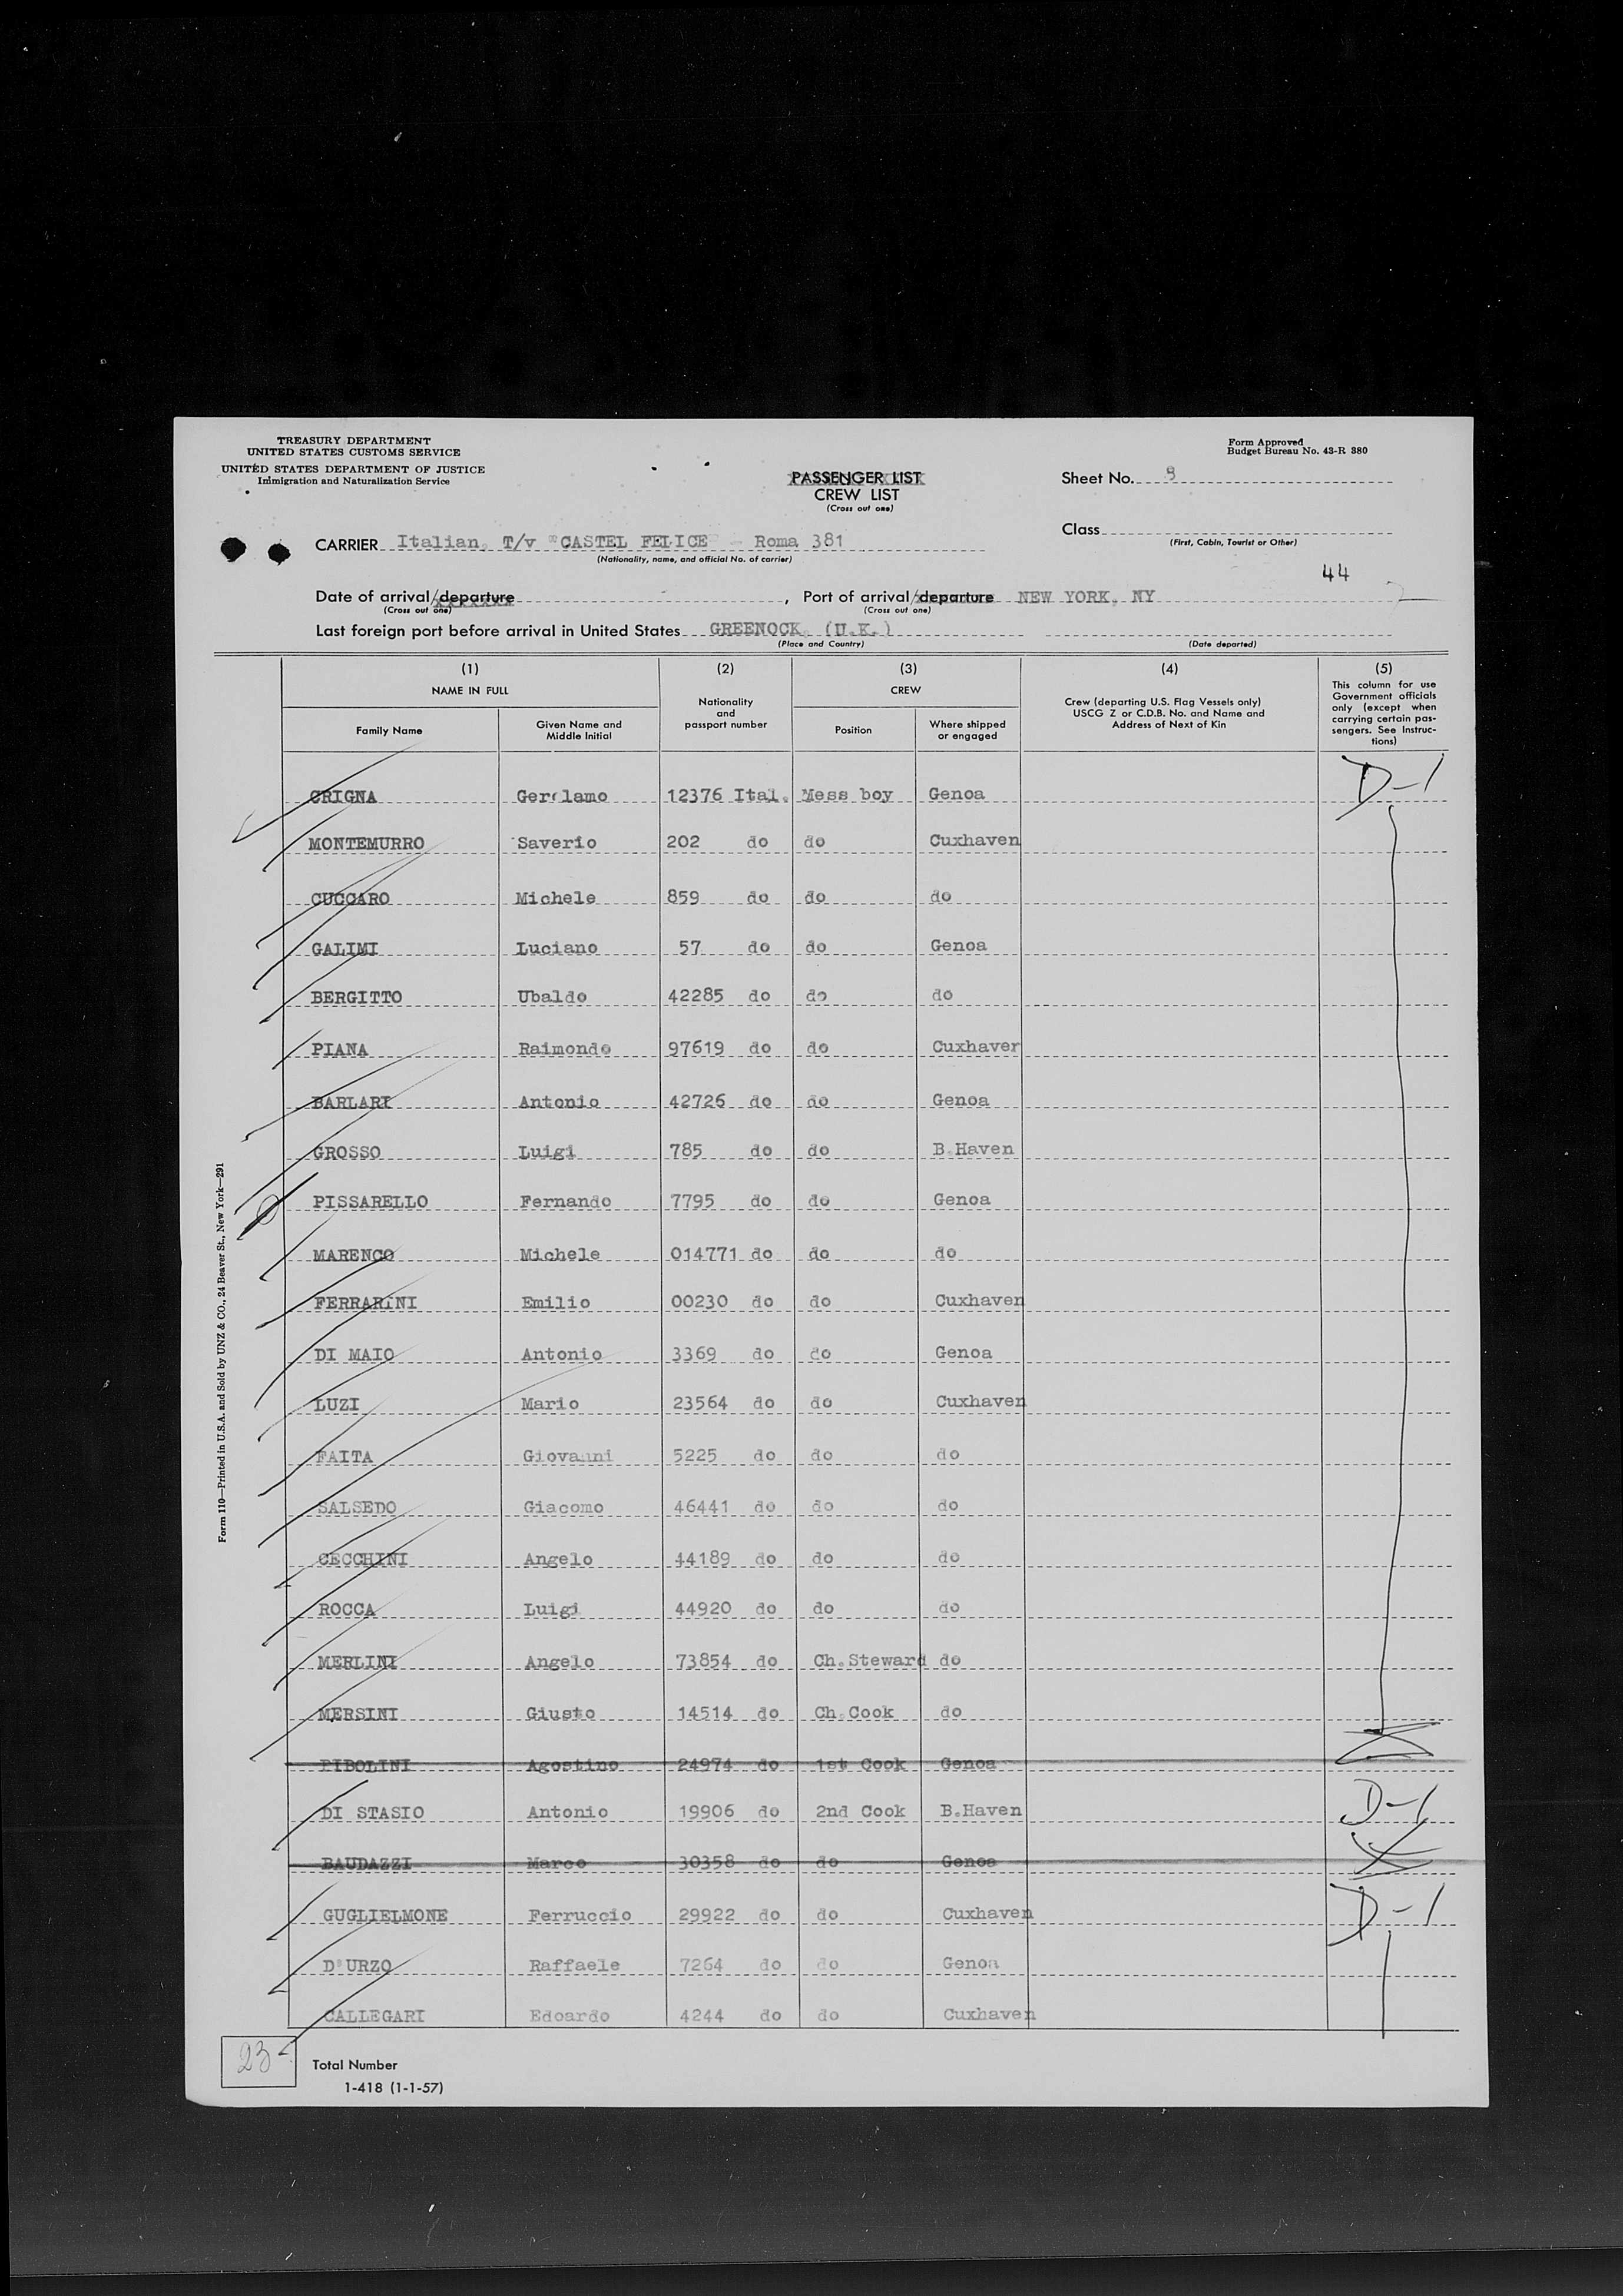 TREASURY DEPARTMENT
UNITED STATES CUSTOMS SERVICE
UNITED STATES DEPARTMENT OF JUSTICE
Immigration and Naturalization Service
Form Approved
Budget Bureau No. 43-R 380
PASSENGER LIST
CREW LIST
(Cross out one)
Sheet No.
Class
(First, Cabin, Tourist or Other)
CARRIER Italian, T/v "CASTEL FELICE" - Roma 381
(Nationality, name, and official No. of carrier)
44
Date of arrival/departure , Port of arrival/departure NEW YORK, NY
(Cross out one) (Cross out one)
Last foreign port before arrival in United States GREENOCK, (U.K.)
(Place and Country) (Date departed)
(1) (2) (3) (4) (5)
NAME IN FULL
Family Name
Given Name and Middle Initial
Nationality and passport number
CREW
Position
Where shipped or engaged
Crew (departing U.S. Flag Vessels only) USCG Z or C.D.B. No. and Name and Address of Next of Kin
This column for use Government officials only (except when carrying certain passengers. See Instructions)
CRIGNA Gerolamo 12376 Ital. Mess boy Genoa D-1
MONTEMURRO Saverio 202 do do Cuxhaven
CUCCARO Michele 859 do do do
GALIMI Luciano 57 do do Genoa
BERGITTO Ubaldo 42285 do do do
PIANA Raimondo 97619 do do Cuxhaven
BARLARI Antonio 42726 do do Genoa
GROSSO Luigi 785 do do B.Haven
PISSARELLO Fernando 7795 do do Genoa
MARENCO Michele 014771 do do do
FERRARINI Emilio 00230 do do Cuxhaven
DI MAIO Antonio 3369 do do Genoa
LUZI Mario 23564 do do Cuxhaven
FAITA Giovanni 5225 do do do
SALSEDO Giacomo 46441 do do do
CECCHINI Angelo 44189 do do do
ROCCA Luigi 44920 do do do
MERLINI Angelo 73854 do Ch.Steward do
MERSINI Giusto 14514 do Ch.Cook do
PIBOLINI Agostino 24974 do 1st Cook Genoa
DI STASIO Antonio 19906 do 2nd Cook B.Haven D-1
BAUDAZZI Marco 30358 do do Genoa
GUGLIELMONE Ferruccio 29922 do do Cuxhaven D-1
D'URZO Raffaele 7264 do do Genoa
CALLEGARI Edoardo 4244 do do Cuxhaven
23
Total Number
1-418 (1-1-57)
Form 110—Printed in U.S.A. and Sold by UNZ & CO., 24 Beaver St., New York—291